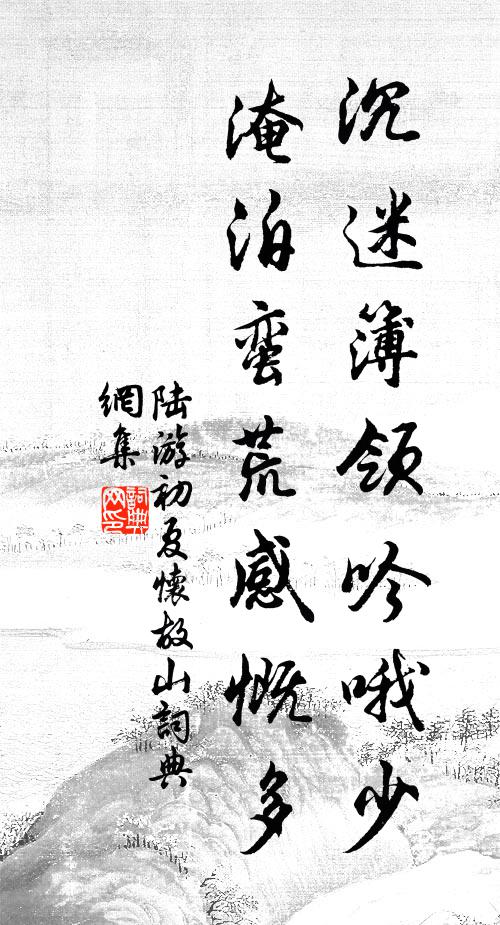 沉迷簿领吟哦少
淹泊蛮荒感慨多
陆游初夏懷故山詞典
網集
詞典
网印